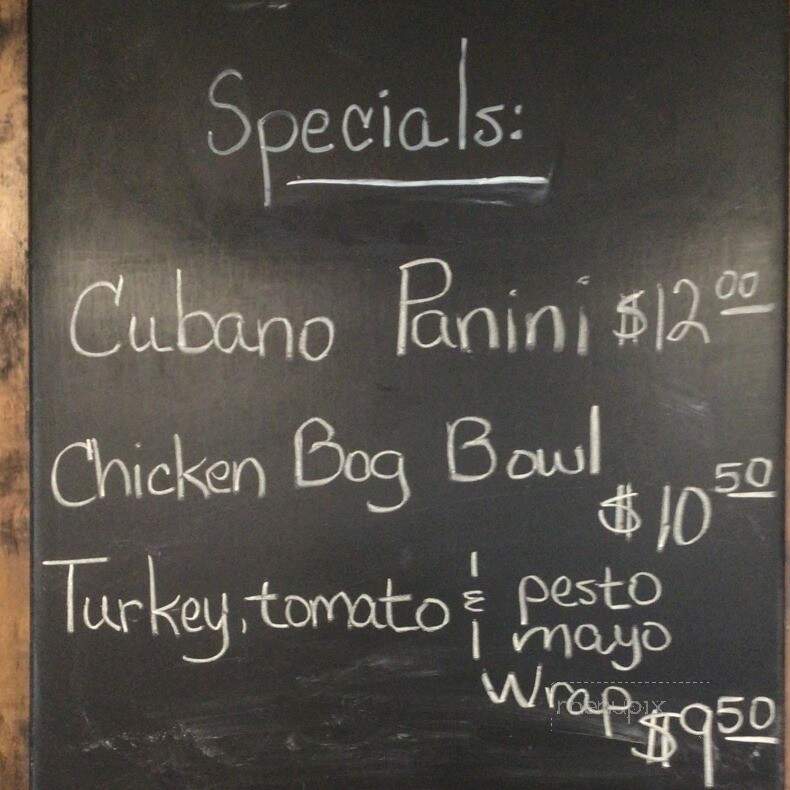 Specials:
Cubano Panini $12.00
Chicken Bog Bowl
$10.50
Turkey, tomato & pesto
mayo
Wrap
$9.50
menupix